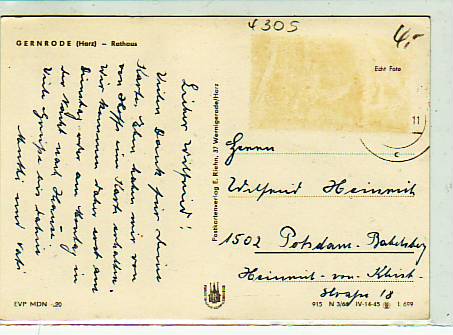 4305
4,-
GERNRODE (Harz) – Rathaus
Echt Foto
11
c
Lieber Wilfried!
Vielen Dank für Deine
Karte. Eben haben wir von
von Hoffs eine Karte erhalten.
Wir kommen daher erst am
Dienstag oder am Montag in
der Nacht nach Hause.
Viele Grüße bis dahin
Mutti und Vati
Postkartenverlag E. Riehn, 37 Wernigerode/Harz
Herrn
Wilfried Heinrich
1502 Potsdam-Babelsberg
Heinrich-von-Kleist-
Straße 18
EVP MDN -,20
915 N 3/66 IV-14-45 L 699